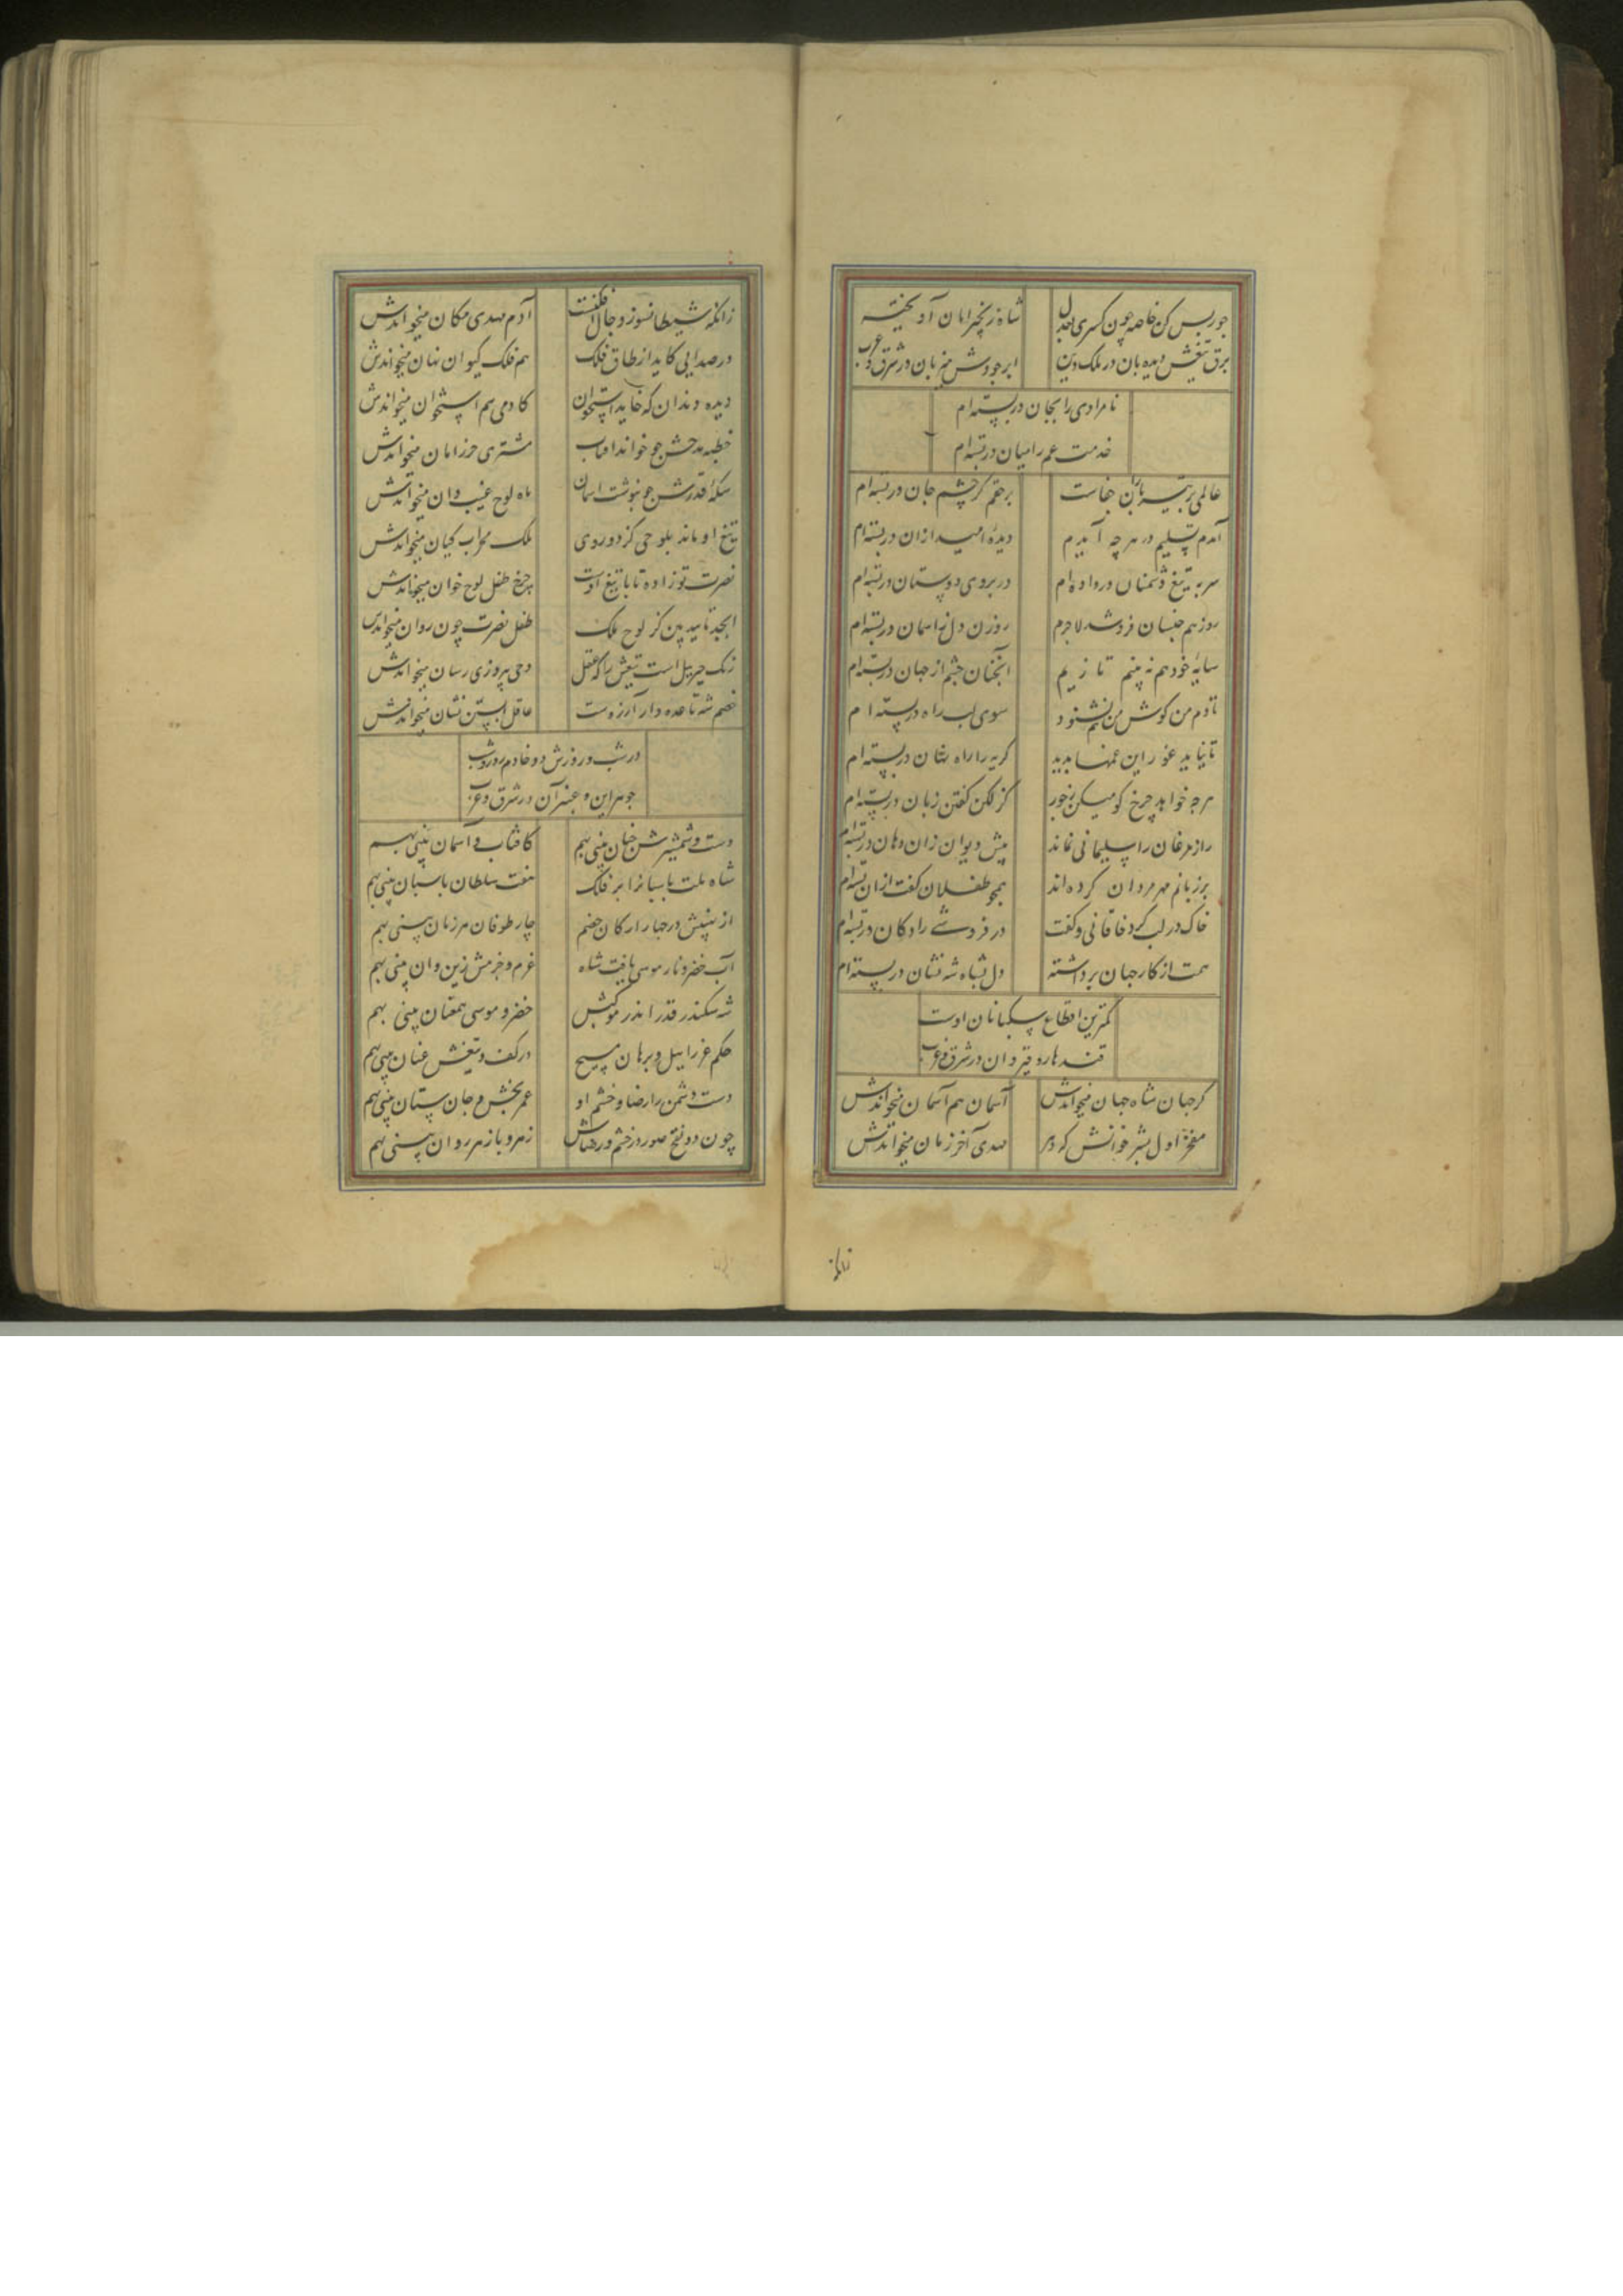 جور بس کن خاصه چون کسری بعدل شاه زنجیر امان آویخته
برق تیغش دیده بان در ملک دین ابر جودش میزبان در شرق و غرب
نامرادی را بجان دربسته‌ام
خدمت غم را میان دربسته‌ام
عالمی پر تیر باران جفاست برحقم گر چشم جان دربسته‌ام
آمدم تسلیم در هر چه آیدم دیدهٔ امید ازان دربسته‌ام
سر به تیغ دشمنان در داده‌ام در بروی دوستان دربسته‌ام
روز هم جنسان فرو شد لاجرم روزن دل ز آسمان دربسته‌ام
سایهٔ خود هم نه بینم تا زیم آنچنان چشم از جهان دربسته‌ام
تا دم من گوش من هم نشنود سوی لب راه دربسته‌ام
تا نیاید غور این غمها بدید گریه را راه نشان دربسته‌ام
هرچه خواهد چرخ گو میکن ز جور کز لکن گفتن زبان دربسته‌ام
راز مرغان را سلیمانی نماند پیش دیوان زان دهان دربسته‌ام
بر زبانم مهر مردان کرده‌اند همچو طفلان گفت ازان بسته‌ام
خاک در لب کرد خاقانی و گفت در فروشی را دکان دربسته‌ام
همت از کار جهان برداشته دل بشاه شه نشان دربسته‌ام
کمترین اقطاع سگبانان اوست
قندهار و قیروان در شرق و غرب
گر جهان شاه جهان میخواندش آسمان هم آسمان میخواندش
مفخر اول بشر خوانش که دهر مهدی آخر زمان میخواندش
زانکه
زانکه شیطان سوز و دجال افکنست آدم مهدی مکان میخواندش
در صدایی کاید از طاق فلک هم فلک کیوان نهان میخواندش
دیده دندان که خاید استخوان کادمی هم استخوان میخواندش
خطبه مدحش چو خواند افتاب مشتری حرز امان میخواندش
سکهٔ قدرش چو بنوشت اسمان ماه لوح غیب دان میخواندش
تیغ او ماند بلوحی کز دو روی ملک محراب کیان میخواندش
نصرت نوزاده تا با تیغ اوست چرخ طفل لوح خوان میخواندش
ابجد تایید بین کز لوح ملک طفل نصرت چون روان میخواندش
زنگ جبریل است تیغش را که عقل وحی پیروزی رسان میخواندش
خصم شه تا عده دار آرزوست عاقل آبستن نشان میخواندش
در شب و روزش دو خادم روز و شب
جوهر این و عنبر آن در شرق و غرب
دست و شمشیرش چنان بینی بهم کافتاب و آسمان بینی بهم
شاه ملت پاسبان را بر فلک هفت سلطان پاسبان بینی بهم
از بنیش در چهار ارکان خصم چار طوفان هر زمان بینی بهم
آب خضر و نار موسی یافت شاه عزم و حزمش زین و ان بینی بهم
شه سکندر قدر اندر موکبش خضر و موسی همعنان بینی بهم
حکم عزراییل و برهان مسیح در کف و تیغش عنان بینی بهم
دست دشمن را رضا و خشم او عمر بخش و جان ستان بینی بهم
چون دو نفخ صور در خشم و رضاش زهر و پازهر روان بینی بهم